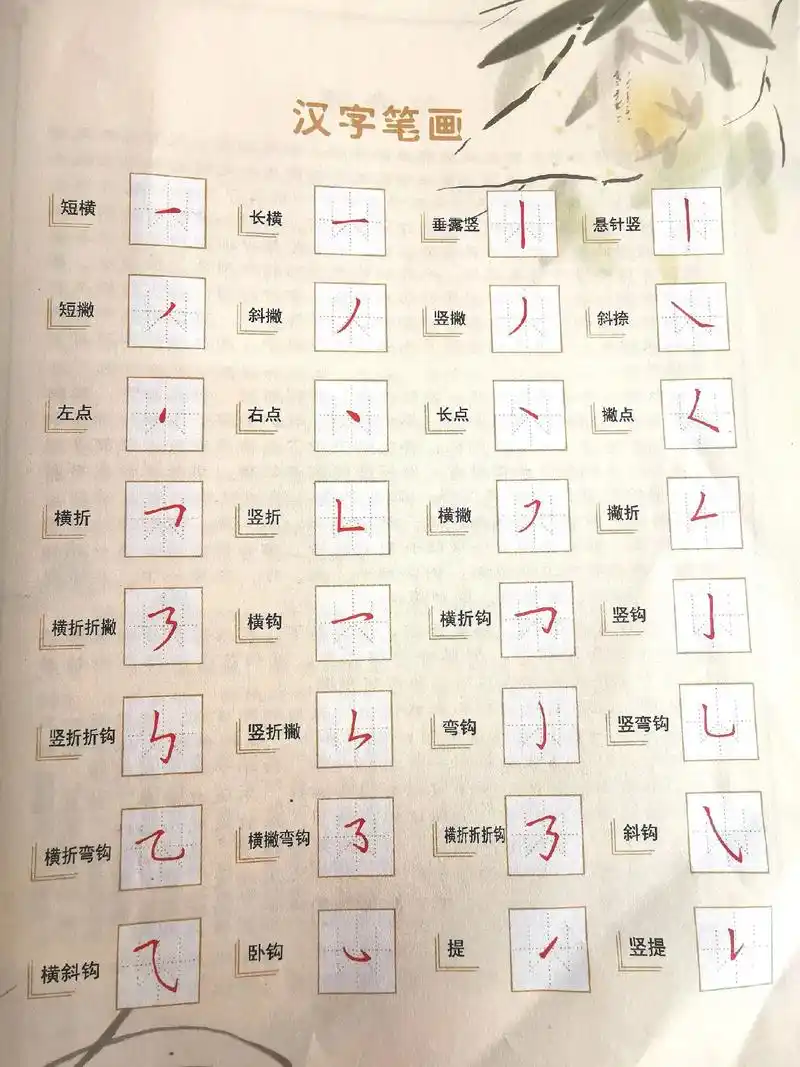 汉字笔画
短横 一 长横 一 垂露竖 丨 悬针竖 丨
短撇 ㇒ 斜撇 ㇒ 竖撇 ㇓ 斜捺 ㇏
左点 ㇔ 右点 ㇔ 长点 ㇔ 撇点 ㇛
横折 ㇕ 竖折 ㇗ 横撇 ㇇ 撇折 ㇜
横折折撇 ㇋ 横钩 ㇖ 横折钩 ㇆ 竖钩 ㇚
竖折折钩 ㇉ 竖折撇 ㇞ 弯钩 ㇁ 竖弯钩 ㇟
横折弯钩 ㇈ 横撇弯钩 ㇌ 横折折折钩 ㇡ 斜钩 ㇂
横斜钩 ⺄ 卧钩 ㇃ 提 ㇀ 竖提 ㇙